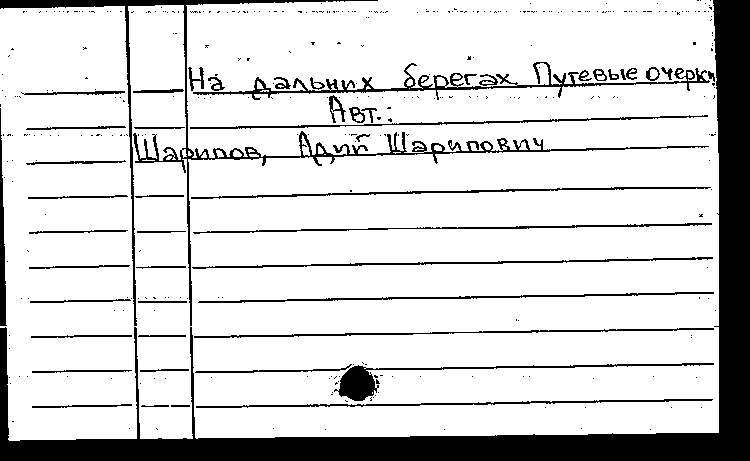 На дальних берегах. Путевые очерки
Авт.:
Шарипов, Адий Шарипович